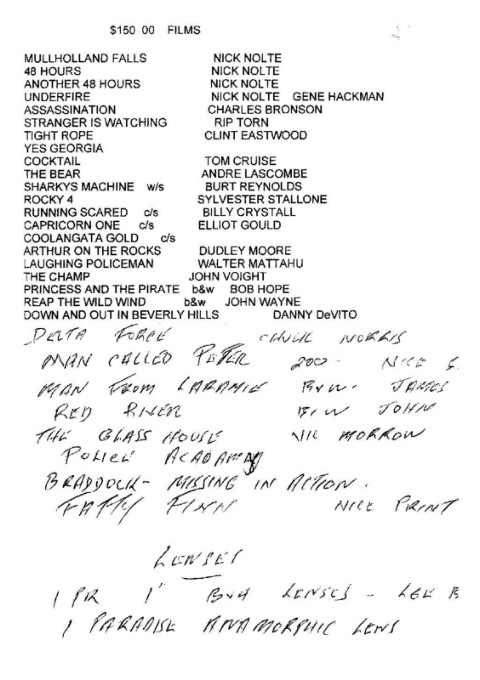 $150 00 FILMS
MULLHOLLAND FALLS NICK NOLTE
48 HOURS NICK NOLTE
ANOTHER 48 HOURS NICK NOLTE
UNDERFIRE NICK NOLTE GENE HACKMAN
ASSASSINATION CHARLES BRONSON
STRANGER IS WATCHING RIP TORN
TIGHT ROPE CLINT EASTWOOD
YES GEORGIA
COCKTAIL TOM CRUISE
THE BEAR ANDRE LASCOMBE
SHARKYS MACHINE w/s BURT REYNOLDS
ROCKY 4 SYLVESTER STALLONE
RUNNING SCARED c/s BILLY CRYSTALL
CAPRICORN ONE c/s ELLIOT GOULD
COOLANGATA GOLD c/s
ARTHUR ON THE ROCKS DUDLEY MOORE
LAUGHING POLICEMAN WALTER MATTAHU
THE CHAMP JOHN VOIGHT
PRINCESS AND THE PIRATE b&w BOB HOPE
REAP THE WILD WIND b&w JOHN WAYNE
DOWN AND OUT IN BEVERLY HILLS DANNY DeVITO
DELTA FORCE CHUCK NORRIS
MAN CALLED PETER 200- NICE
MAN FROM LARAMIE B+W. JAMES
RED RIVER B+W JOHN
THE GLASS HOUSE VIC MORROW
POLICE ACADAMY
BRADDOCK- MISSING IN ACTION.
FATTY FINN NICE PRINT
LENSES
1 PR 1" B+H LENSES -
1 PARADISE ANAMORPHIC LENS